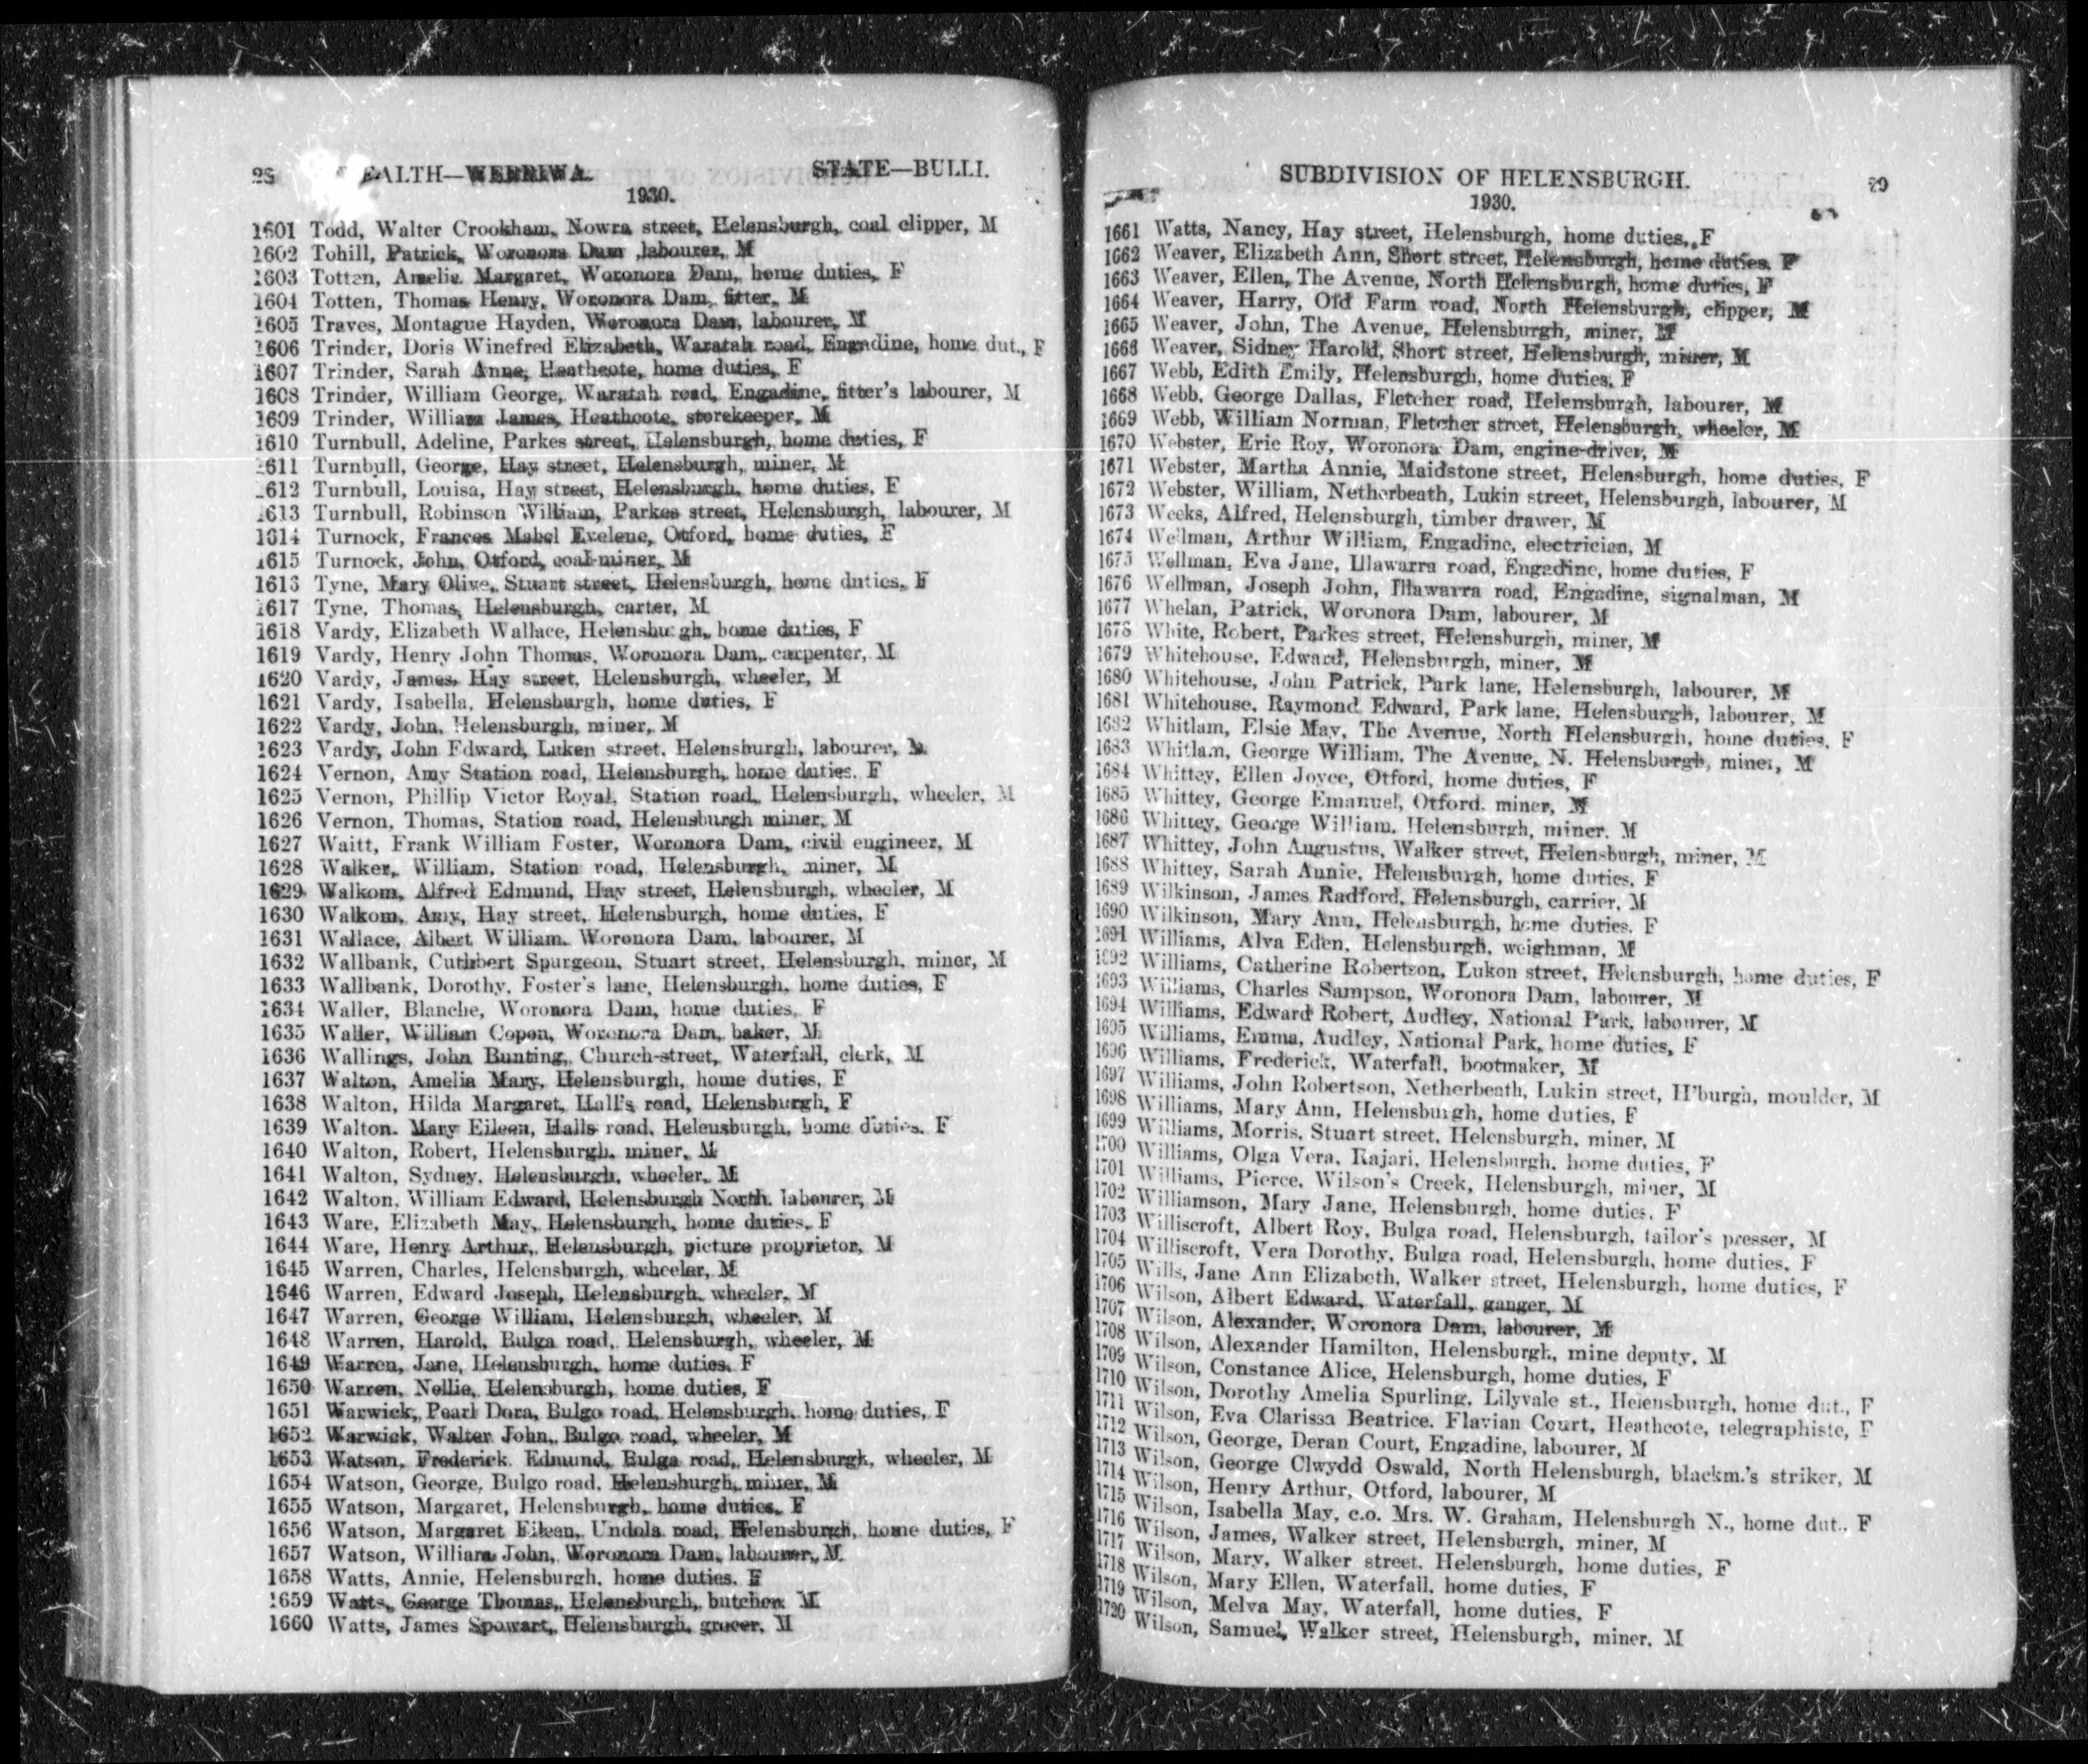 28 EALTH—WERRIWA. STATE—BULLI.
1930.
1601 Todd, Walter Crookham, Nowra street, Helensburgh, coal clipper, M
1602 Tohill, Patrick, Woronora Dam ,labourer, M
1603 Totten, Amelia Margaret, Woronora Dam, home duties, F
1604 Totten, Thomas Henry, Woronora Dam, fitter, M
1605 Traves, Montague Hayden, Woronora Dam, labourer, M
1606 Trinder, Doris Winefred Elizabeth, Waratah road, Engadine, home dut., F
1607 Trinder, Sarah Anne, Heathcote, home duties, F
1608 Trinder, William George, Waratah road, Engadine, fitter's labourer, M
1609 Trinder, William James, Heathcote, storekeeper, M
1610 Turnbull, Adeline, Parkes street, Helensburgh, home duties, F
1611 Turnbull, George, Hay street, Helensburgh, miner, M
1612 Turnbull, Louisa, Hay street, Helensburgh, home duties, F
1613 Turnbull, Robinson William, Parkes street, Helensburgh, labourer, M
1614 Turnock, Frances Mabel Evelene, Otford, home duties, F
1615 Turnock, John, Otford, coal-miner, M
1616 Tyne, Mary Olive, Stuart street, Helensburgh, home duties, F
1617 Tyne, Thomas, Helensburgh, carter, M
1618 Vardy, Elizabeth Wallace, Helensburgh, home duties, F
1619 Vardy, Henry John Thomas, Woronora Dam, carpenter, M
1620 Vardy, James, Hay street, Helensburgh, wheeler, M
1621 Vardy, Isabella, Helensburgh, home duties, F
1622 Vardy, John, Helensburgh, miner, M
1623 Vardy, John Edward, Luken street, Helensburgh, labourer, M
1624 Vernon, Amy Station road, Helensburgh, home duties, F
1625 Vernon, Phillip Victor Royal, Station road, Helensburgh, wheeler, M
1626 Vernon, Thomas, Station road, Helensburgh miner, M
1627 Waitt, Frank William Foster, Woronora Dam, civil engineer, M
1628 Walker, William, Station road, Helensburgh, miner, M
1629 Walkom, Alfred Edmund, Hay street, Helensburgh, wheeler, M
1630 Walkom, Amy, Hay street, Helensburgh, home duties, F
1631 Wallace, Albert William, Woronora Dam, labourer, M
1632 Wallbank, Cuthbert Spurgeon, Stuart street, Helensburgh, miner, M
1633 Wallbank, Dorothy, Foster's lane, Helensburgh, home duties, F
1634 Waller, Blanche, Woronora Dam, home duties, F
1635 Waller, William Copon, Woronora Dam, baker, M
1636 Wallings, John Bunting, Church-street, Waterfall, clerk, M
1637 Walton, Amelia Mary, Helensburgh, home duties, F
1638 Walton, Hilda Margaret, Hall's road, Helensburgh, F
1639 Walton. Mary Eileen, Halls road, Helensburgh, home duties, F
1640 Walton, Robert, Helensburgh, miner, M
1641 Walton, Sydney, Helensburgh, wheeler, M
1642 Walton, William Edward, Helensburgh North, labourer, M
1643 Ware, Elizabeth May, Helensburgh, home duties, F
1644 Ware, Henry Arthur, Helensburgh, picture proprietor, M
1645 Warren, Charles, Helensburgh, wheeler, M
1646 Warren, Edward Joseph, Helensburgh, wheeler, M
1647 Warren, George William, Helensburgh, wheeler, M
1648 Warren, Harold, Bulga road, Helensburgh, wheeler, M
1649 Warren, Jane, Helensburgh, home duties, F
1650 Warren, Nellie, Helensburgh, home duties, F
1651 Warwick, Pearl Dora, Bulgo road, Helensburgh, home duties, F
1652 Warwick, Walter John, Bulgo road, wheeler, M
1653 Watson, Frederick Edmund, Bulga road, Helensburgh, wheeler, M
1654 Watson, George, Bulgo road, Helensburgh, miner, M
1655 Watson, Margaret, Helensburgh, home duties, F
1656 Watson, Margaret Eileen, Undola road, Helensburgh, home duties, F
1657 Watson, William John, Woronora Dam, labourer, M
1658 Watts, Annie, Helensburgh, home duties, F
1659 Watts, George Thomas, Helensburgh, butcher M
1660 Watts, James Spowart, Helensburgh, grocer, M
SUBDIVISION OF HELENSBURGH. 29
1930.
1661 Watts, Nancy, Hay street, Helensburgh, home duties, F
1662 Weaver, Elizabeth Ann, Short street, Helensburgh, home duties, F
1663 Weaver, Ellen, The Avenue, North Helensburgh, home duties, F
1664 Weaver, Harry, Old Farm road, North Helensburgh, clipper, M
1665 Weaver, John, The Avenue, Helensburgh, miner, M
1666 Weaver, Sidney Harold, Short street, Helensburgh, miner, M
1667 Webb, Edith Emily, Helensburgh, home duties, F
1668 Webb, George Dallas, Fletcher road, Helensburgh, labourer, M
1669 Webb, William Norman, Fletcher street, Helensburgh, wheeler, M
1670 Webster, Eric Roy, Woronora Dam, engine-driver, M
1671 Webster, Martha Annie, Maidstone street, Helensburgh, home duties, F
1672 Webster, William, Netherbeath, Lukin street, Helensburgh, labourer, M
1673 Weeks, Alfred, Helensburgh, timber drawer, M
1674 Wellman, Arthur William, Engadine, electrician, M
1675 Wellman, Eva Jane, Illawarra road, Engadine, home duties, F
1676 Wellman, Joseph John, Illawarra road, Engadine, signalman, M
1677 Whelan, Patrick, Woronora Dam, labourer, M
1678 White, Robert, Parkes street, Helensburgh, miner, M
1679 Whitehouse, Edward, Helensburgh, miner, M
1680 Whitehouse, John Patrick, Park lane, Helensburgh, labourer, M
1681 Whitehouse, Raymond Edward, Park lane, Helensburgh, labourer, M
1682 Whitlam, Elsie May, The Avenue, North Helensburgh, home duties, F
1683 Whitlam, George William, The Avenue, N. Helensburgh, miner, M
1684 Whittey, Ellen Joyce, Otford, home duties, F
1685 Whittey, George Emanuel, Otford, miner, M
1686 Whittey, George William, Helensburgh, miner, M
1687 Whittey, John Augustus, Walker street, Helensburgh, miner, M
1688 Whittey, Sarah Annie, Helensburgh, home duties, F
1689 Wilkinson, James Radford, Helensburgh, carrier, M
1690 Wilkinson, Mary Ann, Helensburgh, home duties, F
1691 Williams, Alva Eden, Helensburgh, weighman, M
1692 Williams, Catherine Robertson, Lukon street, Helensburgh, home duties, F
1693 Williams, Charles Sampson, Woronora Dam, labourer, M
1694 Williams, Edward Robert, Audley, National Park, labourer, M
1695 Williams, Emma, Audley, National Park, home duties, F
1696 Williams, Frederick, Waterfall, bootmaker, M
1697 Williams, John Robertson, Netherbeath, Lukin street, H'burgh, moulder, M
1698 Williams, Mary Ann, Helensburgh, home duties, F
1699 Williams, Morris, Stuart street, Helensburgh, miner, M
1700 Williams, Olga Vera, Rajari, Helensburgh, home duties, F
1701 Williams, Pierce, Wilson's Creek, Helensburgh, miner, M
1702 Williamson, Mary Jane, Helensburgh, home duties, F
1703 Williscroft, Albert Roy, Bulga road, Helensburgh, tailor's presser, M
1704 Williscroft, Vera Dorothy, Bulga road, Helensburgh, home duties, F
1705 Wills, Jane Ann Elizabeth, Walker street, Helensburgh, home duties, F
1706 Wilson, Albert Edward, Waterfall, ganger, M
1707 Wilson, Alexander, Woronora Dam, labourer, M
1708 Wilson, Alexander Hamilton, Helensburgh, mine deputy, M
1709 Wilson, Constance Alice, Helensburgh, home duties, F
1710 Wilson, Dorothy Amelia Spurling, Lilyvale st., Helensburgh, home dut., F
1711 Wilson, Eva Clarissa Beatrice, Flavian Court, Heathcote, telegraphiste, F
1712 Wilson, George, Deran Court, Engadine, labourer, M
1713 Wilson, George Clwydd Oswald, North Helensburgh, blackm.'s striker, M
1714 Wilson, Henry Arthur, Otford, labourer, M
1715 Wilson, Isabella May, c.o. Mrs. W. Graham, Helensburgh N., home dut., F
1716 Wilson, James, Walker street, Helensburgh, miner, M
1717 Wilson, Mary, Walker street, Helensburgh, home duties, F
1718 Wilson, Mary Ellen, Waterfall, home duties, F
1719 Wilson, Melva May, Waterfall, home duties, F
1720 Wilson, Samuel, Walker street, Helensburgh, miner, M